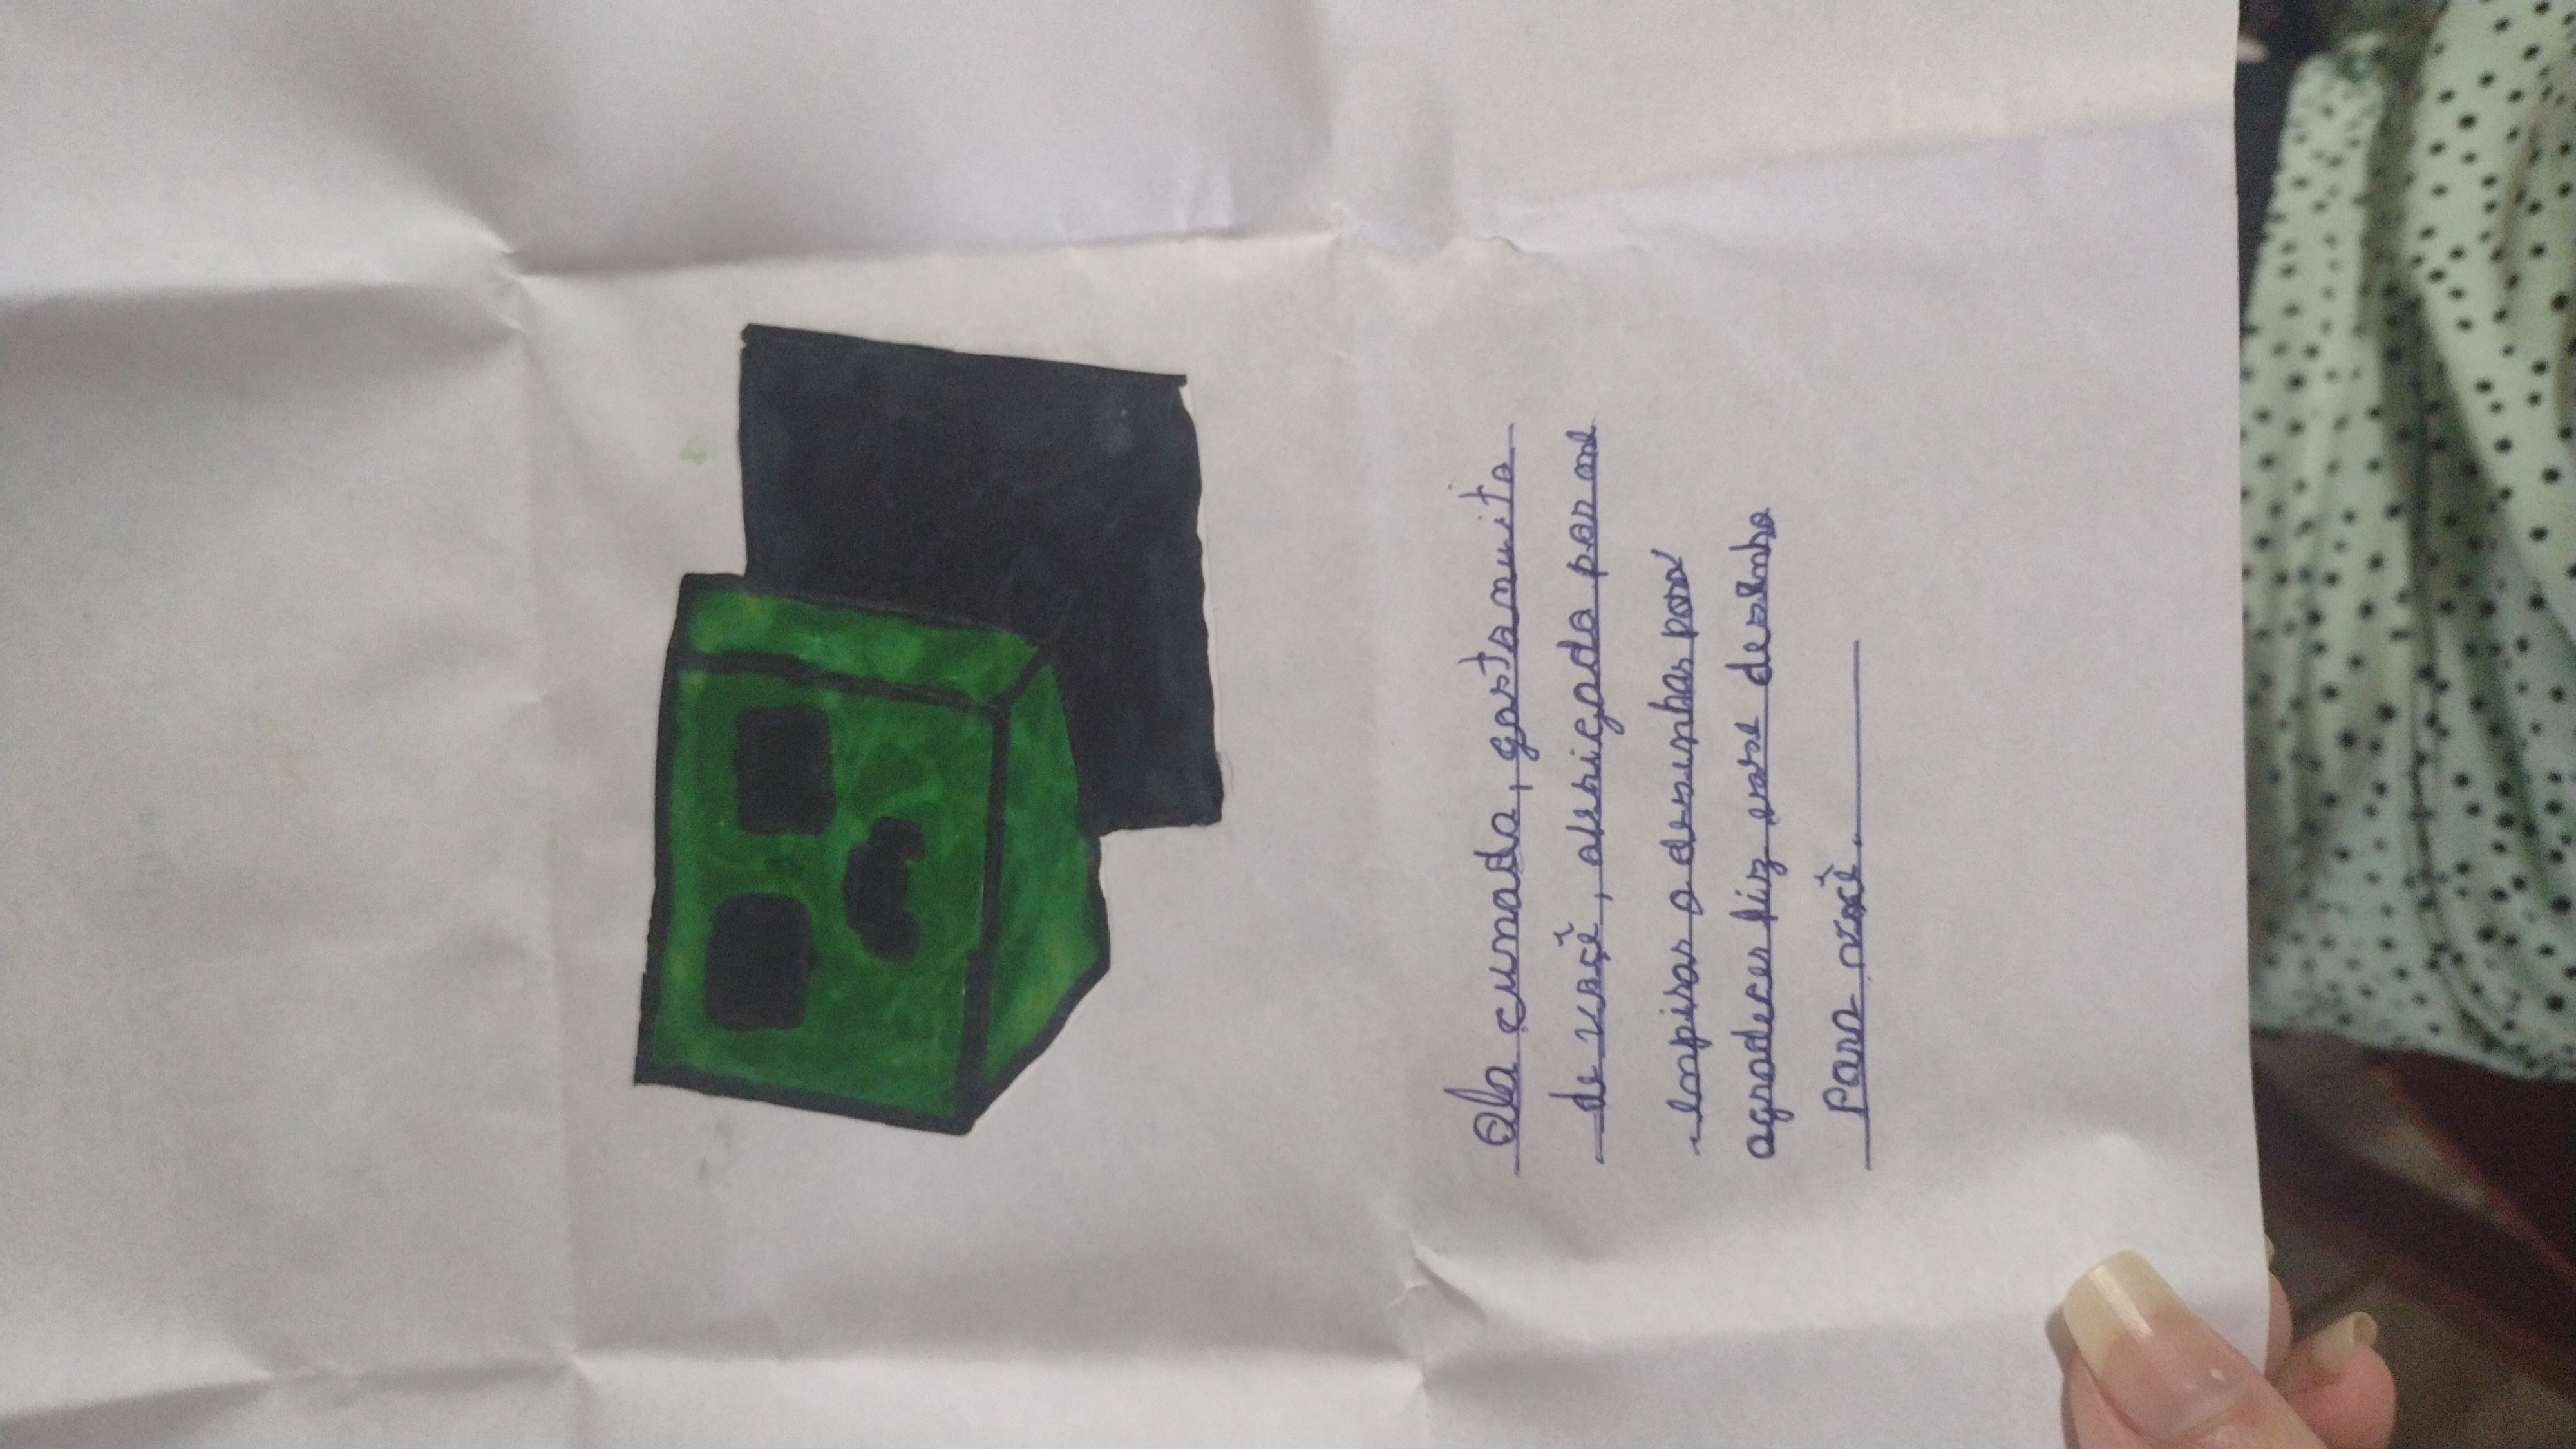 Ola cunada, gosto muito
de voçê, obrigada por me
empirar a desenhar para
agradecer fiz esse desenho
para você.